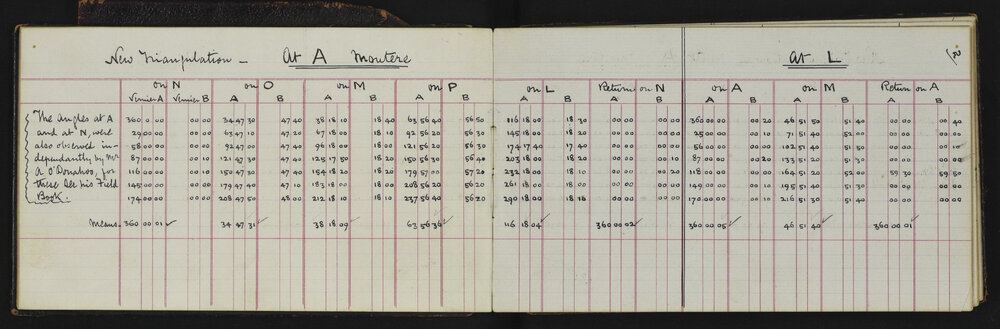 New Triangulation - At A Moutere At L
on N on O on M on P on L Return on N on A on M Return on A
Vernier A Vernier B A B A B A B A B A B A B A B A B
The angles at A 360 00 00 34 47 30 47 40 38 18 10 18 40 63 56 40 56 50 116 18 18 30 00 00 00 00 360 00 00 00 20 46 51 50 51 40 00 00 00 40
and at N, were 29 00 00 00 00 63 47 10 47 20 67 18 00 18 10 92 56 20 56 30 145 18 20 18 20 00 00 00 00 25 00 00 00 10 71 51 40 52 00 00 00 00 00
also observed in- 58 00 00 00 00 92 47 00 47 20 96 18 00 18 10 121 56 20 56 30 174 17 40 17 40 00 00 00 00 56 00 00 00 00 102 51 40 51 40 00 00 00 00
dependantly by Mr 87 00 00 00 10 121 47 30 47 30 125 17 50 18 20 150 56 30 56 40 203 18 00 18 20 00 00 00 00 87 00 00 00 20 133 51 20 51 30 00 00 00 00
A O'Donahoo, for 116 00 00 00 10 150 47 30 47 30 154 18 20 18 20 179 57 00 57 20 232 18 00 18 10 00 00 00 00 118 00 00 00 00 164 52 00 52 00 59 30 59 50
these See his Field 145 00 00 00 00 179 47 40 47 10 183 18 00 18 00 208 56 20 56 20 261 18 00 18 00 00 00 00 00 149 00 00 00 10 195 51 40 51 30 00 00 00 00
Book. 174 00 00 00 00 208 47 50 48 00 212 18 10 18 10 237 56 40 56 30 290 18 00 00 00 00 00 170 00 00 00 10 216 51 30 51 40 00 00 00 00
Means. 360 00 01 ✓ 34 47 31 ✓ 38 18 09 ✓ 63 56 36 ✓ 116 18 04 ✓ 360 00 02 ✓ 360 00 05 ✓ 46 51 40 ✓ 360 00 01 ✓